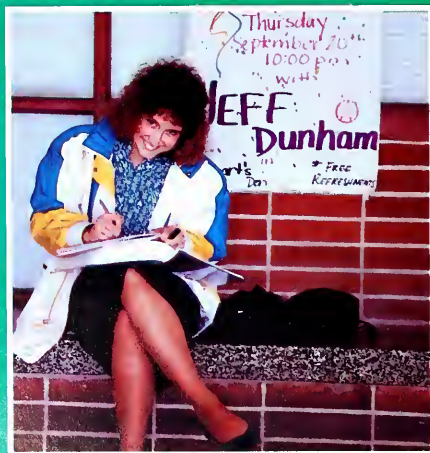 Thursday
September 20th
10:00 pm
with
JEFF
Dunham
Den
* FREE
REFRESHMENTS